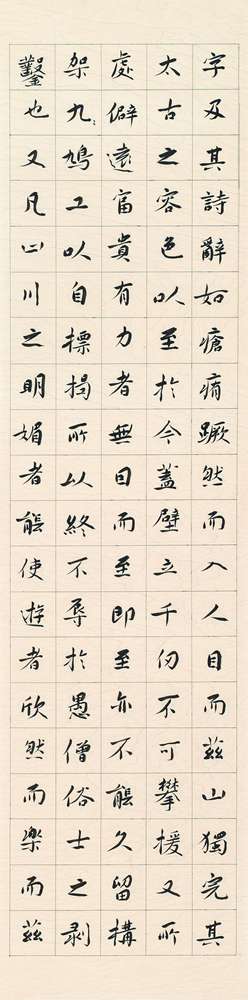 字及其詩辭如瘡痏蹶然而入人目而茲山獨完其
太古之容色以至於今蓋壁立千仞不可攀援又所
處僻遠富貴有力者無因而至即至亦不能久留構
架九鳩工以自摽揭所以終不辱於愚僧俗士之剥
鑿也又凡山川之明媚者能使遊者欣然而樂而茲